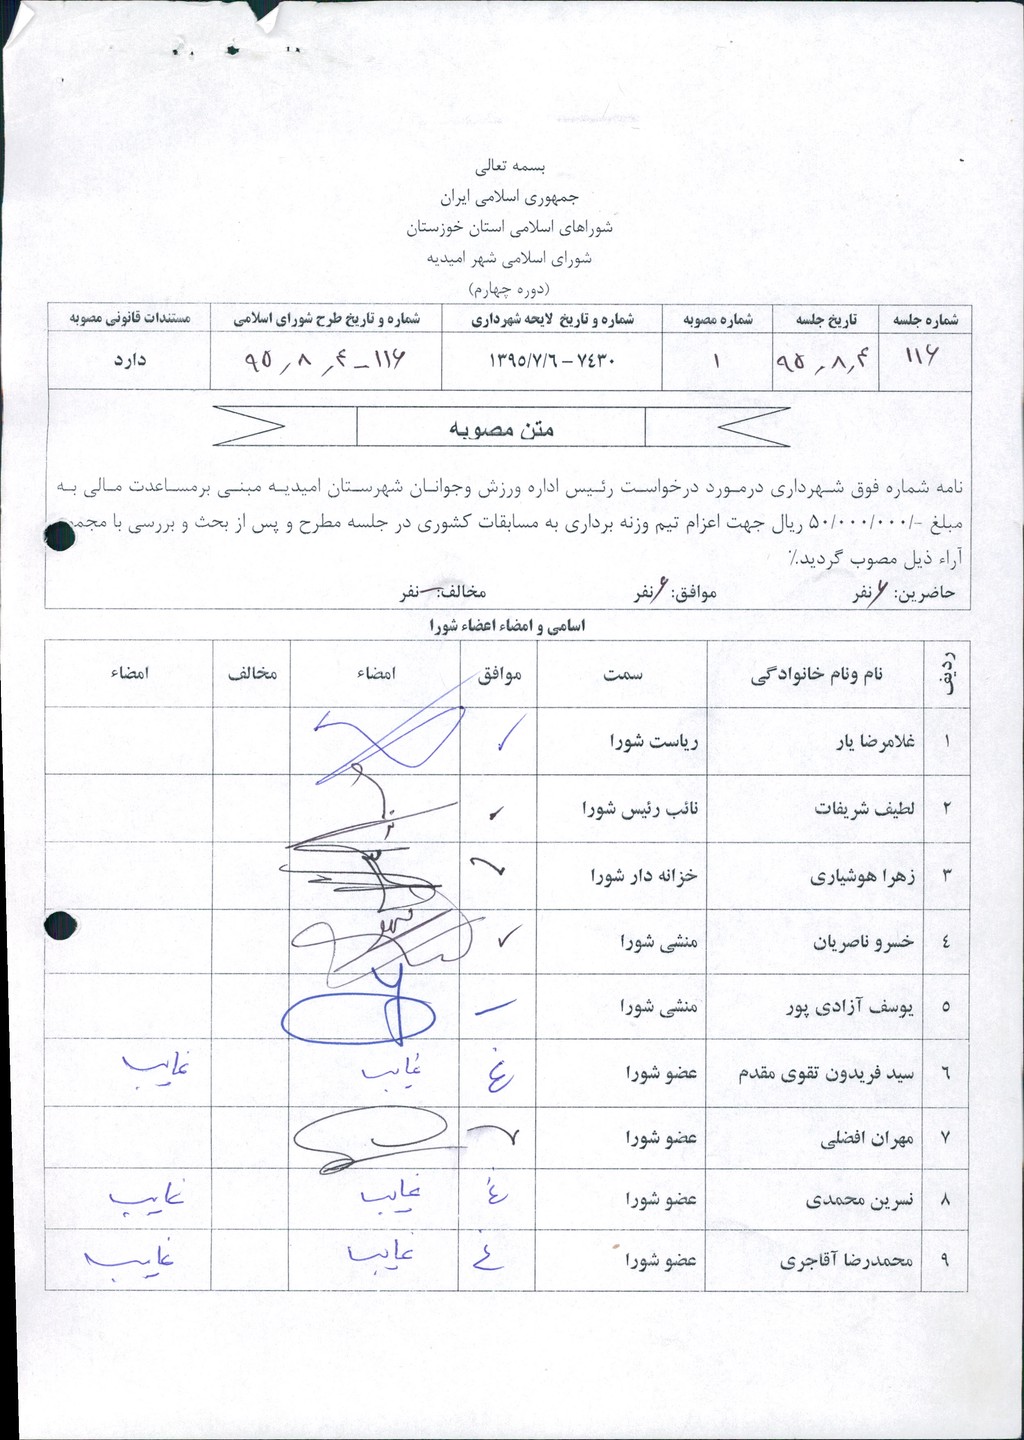 بسمه تعالی
جمهوری اسلامی ایران
شوراهای اسلامی استان خوزستان
شورای اسلامی شهر امیدیه
(دوره چهارم)
شماره جلسه تاریخ جلسه شماره مصوبه شماره و تاریخ لایحه شهرداری شماره و تاریخ طرح شورای اسلامی مستندات قانونی مصوبه
۱۱۶ ۹۵٫۸٫۴ ۱ ۷٤۳۰ – ۱۳۹۵/۷/٦ ۱۱۶ – ۹۵٫۸٫۴ دارد
متن مصوبه
نامه شماره فوق شهرداری درمورد درخواست رئیس اداره ورزش وجوانان شهرستان امیدیه مبنی برمساعدت مالی به
مبلغ -/۵۰/۰۰۰/۰۰۰ ریال جهت اعزام تیم وزنه برداری به مسابقات کشوری در جلسه مطرح و پس از بحث و بررسی با
آراء ذیل مصوب گردید.٪
حاضرین: ۶ نفر موافق: ۶ نفر مخالف: – نفر
اسامی و امضاء اعضاء شورا
ردیف نام ونام خانوادگی سمت موافق امضاء مخالف امضاء
۱ غلامرضا یار ریاست شورا ✓
۲ لطیف شریفات نائب رئیس شورا ✓
۳ زهرا هوشیاری خزانه دار شورا
٤ خسرو ناصریان منشی شورا ✓
٥ یوسف آزادی پور منشی شورا
٦ سید فریدون تقوی مقدم عضو شورا غ غایب غایب
۷ مهران افضلی عضو شورا
۸ نسرین محمدی عضو شورا غ غایب غایب
۹ محمدرضا آقاجری عضو شورا غ غایب غایب